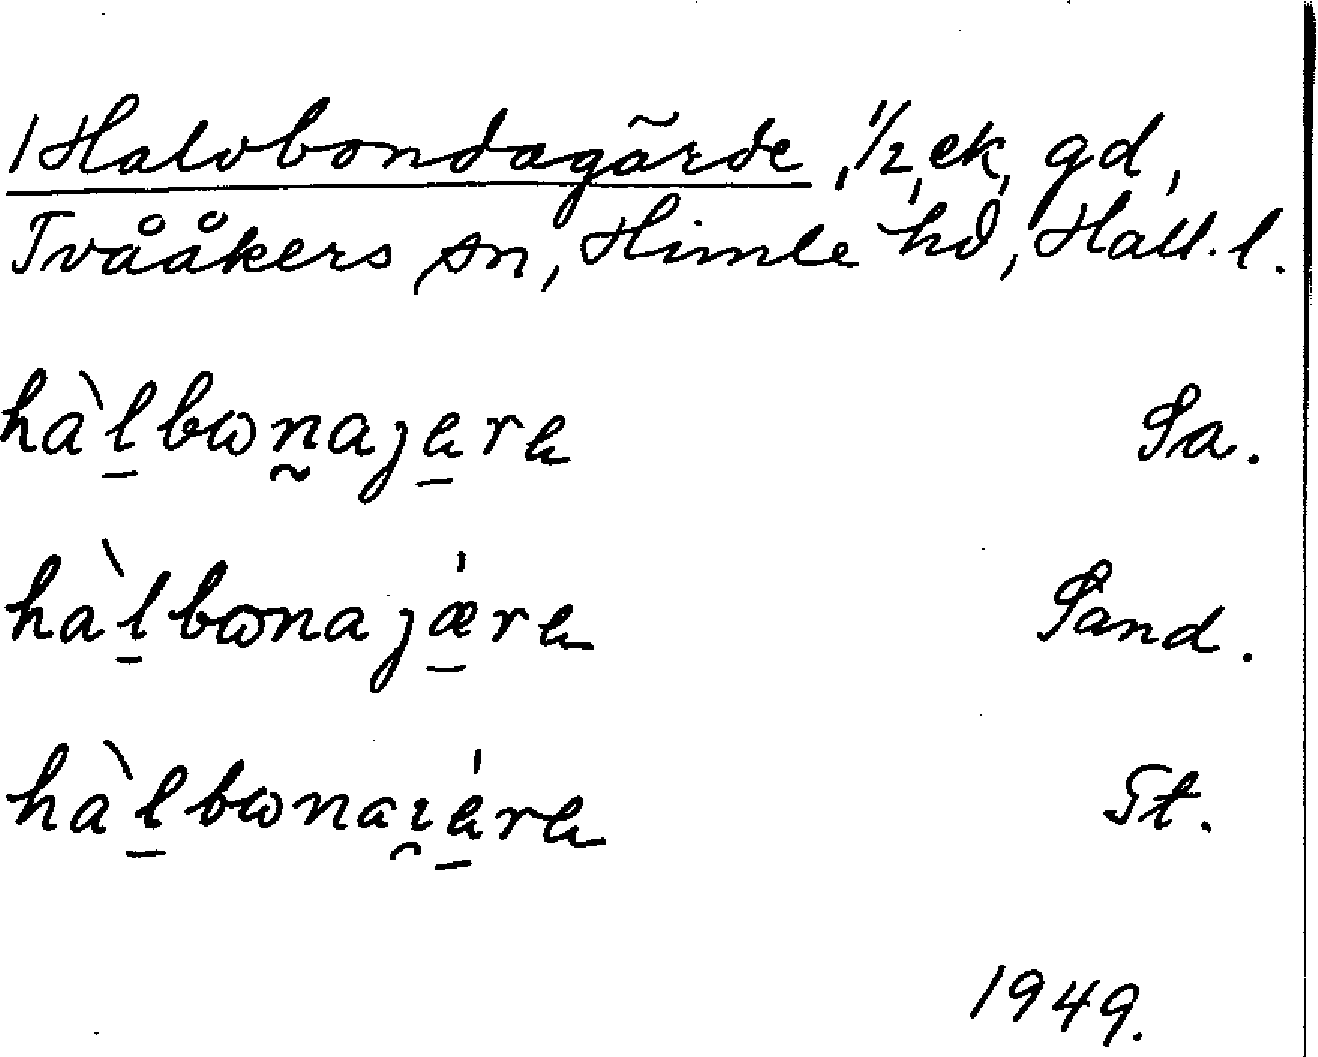 1 Halvbondagärde, 1/2, ek, gd,
Tvååkers sn, Himle hd, Hall. l.
hàl̲bωn̰aje̲re Sa.
hàl̲bωnajǽ̲re Sand.
hàl̲bωnaı̯é̲re St.
1949.